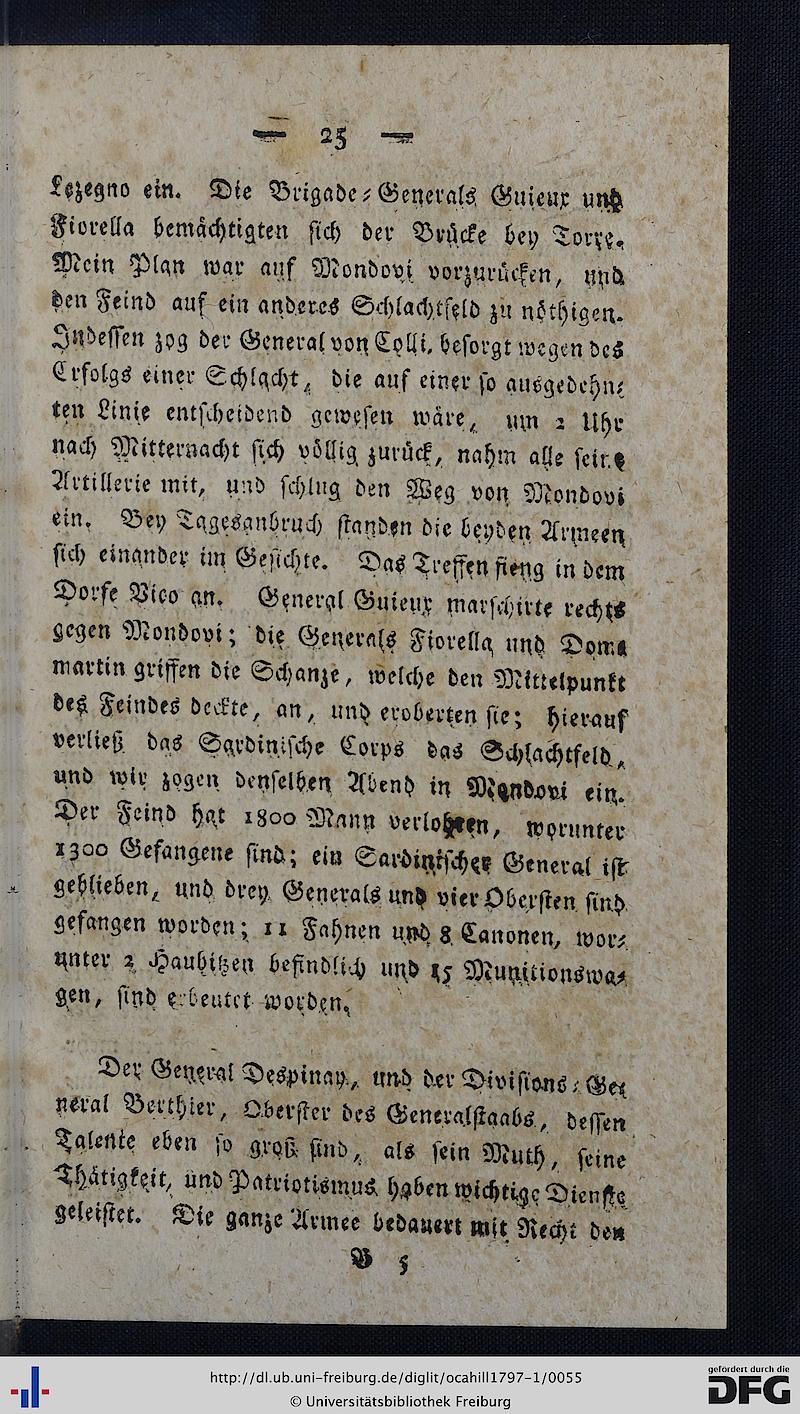 — 25 —
Lezegno ein. Die Brigade-Generals Guieux und
Fiorella bemächtigten sich der Brücke bey Torre.
Mein Plan war auf Mondovi vorzurücken, und
den Feind auf ein anderes Schlachtfeld zu nöthigen.
Indessen zog der General von Colli, besorgt wegen des
Erfolgs einer Schlacht, die auf einer so ausgedehn-
ten Linie entscheidend gewesen wäre, um 2 Uhr
nach Mitternacht sich völlig zurück, nahm alle seine
Artillerie mit, und schlug den Weg von Mondovi
ein. Bey Tagesanbruch standen die beyden Armeen
sich einander im Gesichte. Das Treffen fieng in dem
Dorfe Vico an. General Guieux marschirte rechts
gegen Mondovi; die Generals Fiorella und Doma
martin griffen die Schanze, welche den Mittelpunkt
des Feindes deckte, an, und eroberten sie; hierauf
verließ das Sardinische Corps das Schlachtfeld,
und wir zogen denselben Abend in Mondovi ein.
Der Feind hat 1800 Mann verlohren, worunter
1300 Gefangene sind; ein Sardinischer General ist
geblieben, und drey Generals und vier Obersten sind
gefangen worden; 11 Fahnen und 8 Canonen, wor-
unter 2 Haubitzen befindlich und 15 Munitionswa-
gen, sind erbeutet worden.
Der General Despinay, und der Divisions-Ge-
neral Berthier, Oberster des Generalstaabs, dessen
Talente eben so groß sind, als sein Muth, seine
Thätigkeit, und Patriotismus haben wichtige Dienste
geleistet. Die ganze Armee bedauert mit Recht den
B 5
http://dl.ub.uni-freiburg.de/diglit/ocahill1797-1/0055
© Universitätsbibliothek Freiburg
gefördert durch die
DFG